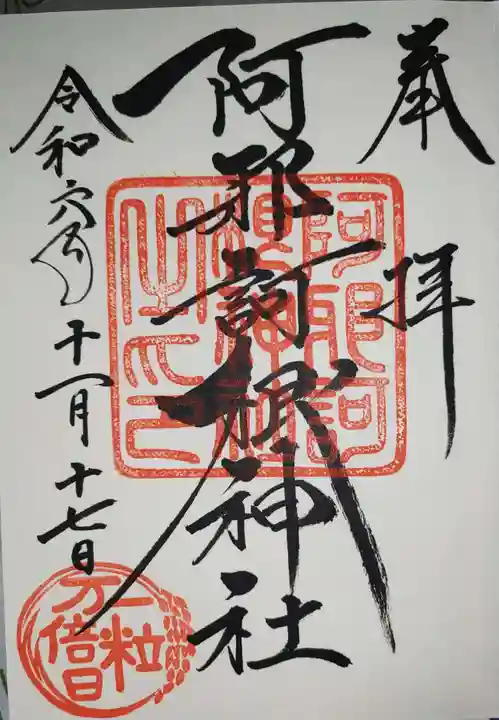 奉拝
阿邪訶根神社
令和六年十一月十七日
阿邪訶
根神社
之印
一粒
万倍日